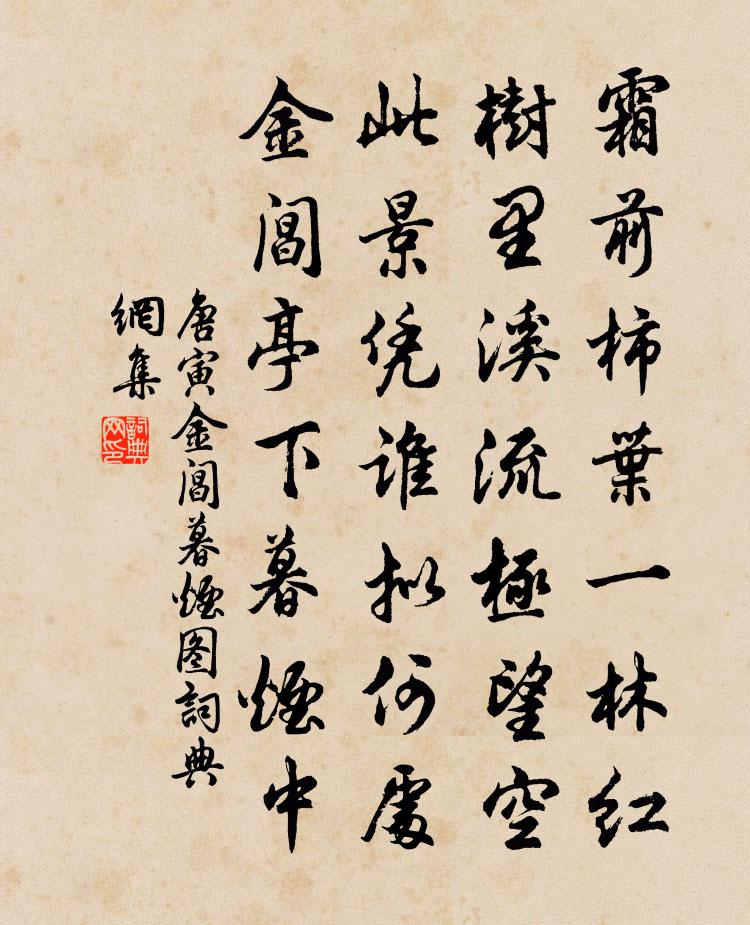 霜前柿葉一林紅
樹里溪流極望空
此景凭誰拟何處
金閶亭下暮煙中
唐寅金閶暮煙图詞典
網集
詞典
网印